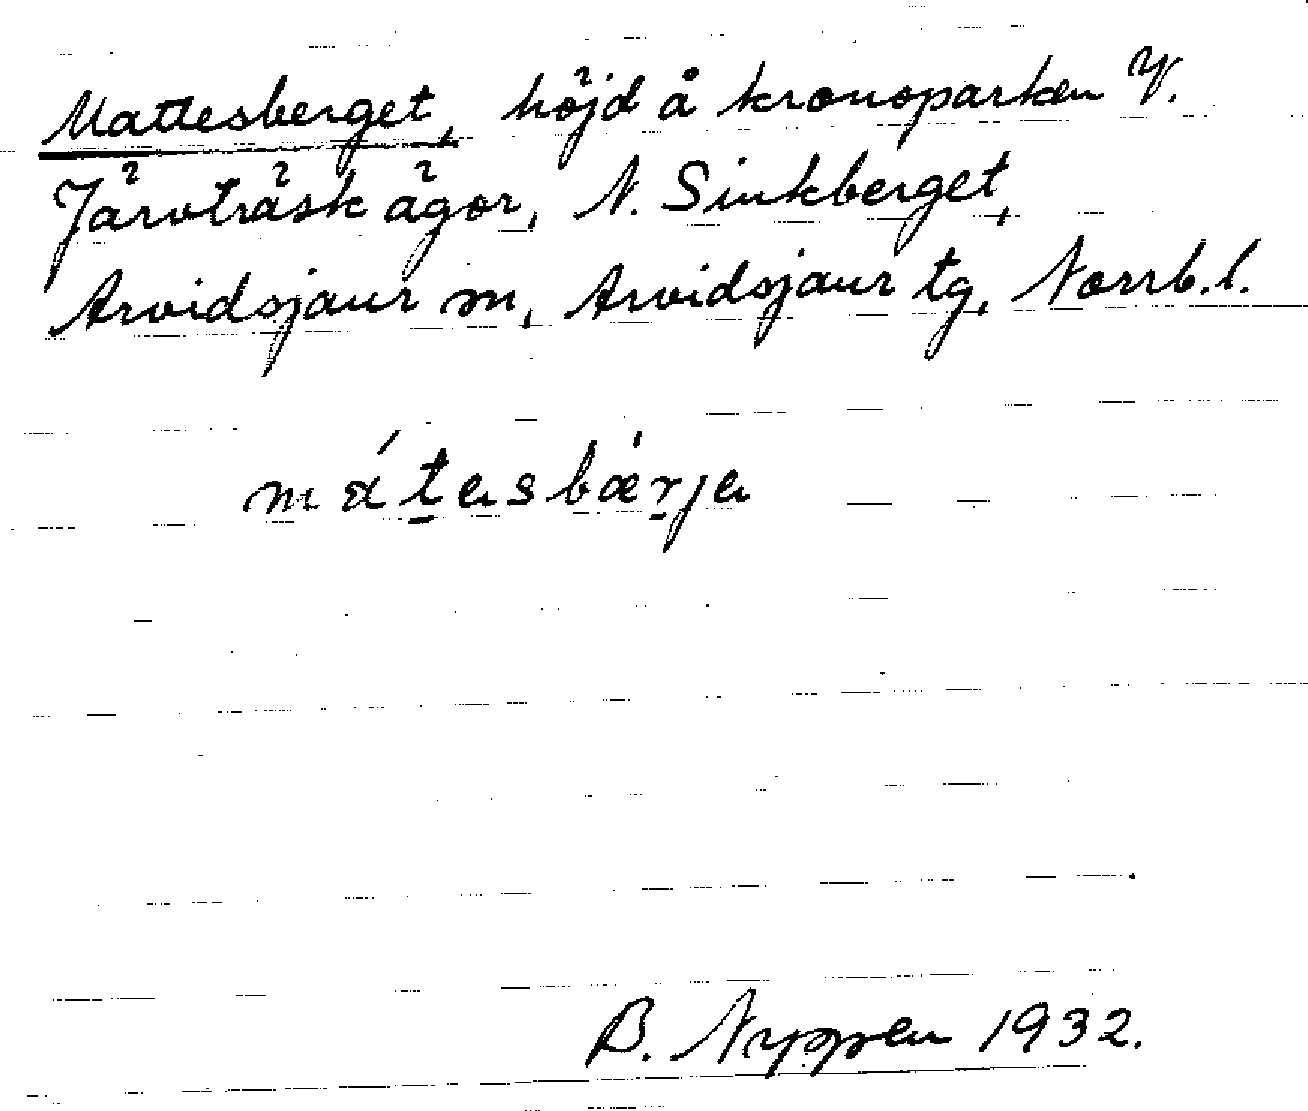 Mattesberget, höjd å kronoparken V.
Järvträsk ägor, N. Sinkberget,
Arvidsjaur sn, Arvidsjaur tg, Norrb.l.
mátasbærja
B. Nyppen 1932.